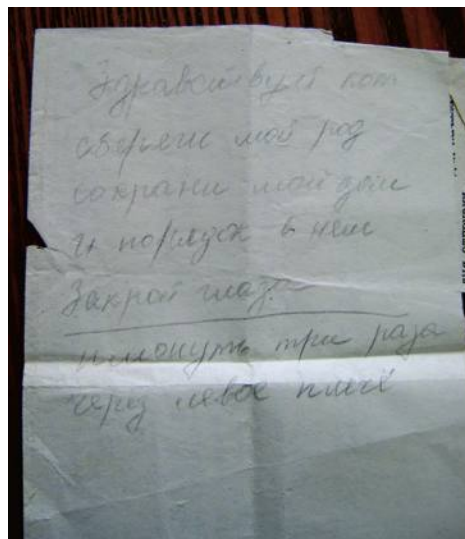 Здравствуй кот
сбереги мой род
сохрани мой дом
и порядок в нем
Закрой глаза
плюнуть три раза
через левое плечё